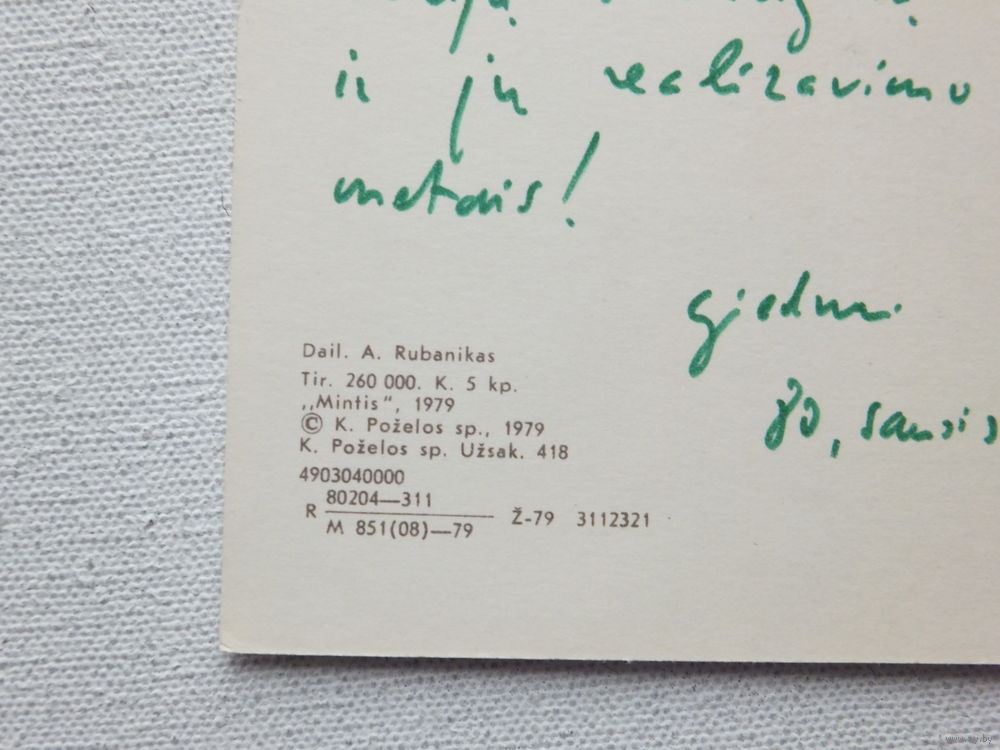 ir jų realizavimo
metais!
80, sausis
Dail. A. Rubanikas
Tir. 260 000. K. 5 kp.
„Mintis“, 1979
© K. Poželos sp., 1979
K. Poželos sp. Užsak. 418
4903040000
R 80204—311
M 851(08)—79
Ž-79 3112321